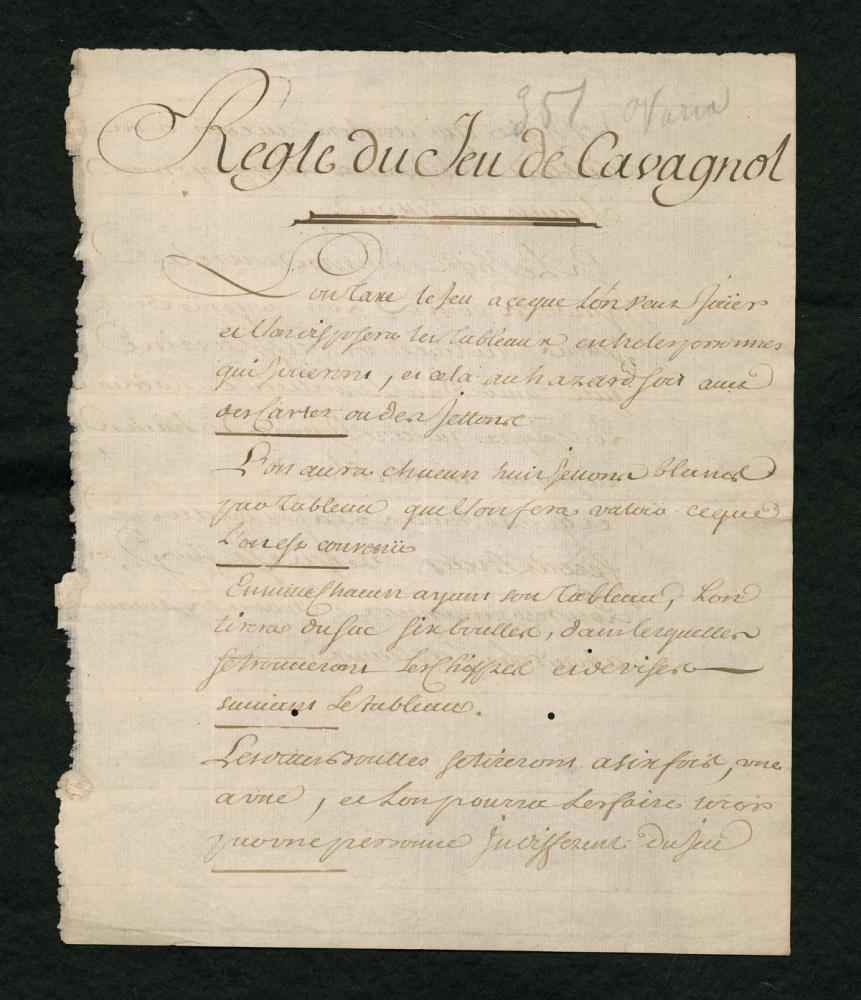 351 Varia
Regle du Jeu de Cavagnol
on taxe le Jeu a ce que L'on veut Joüer
et L'on disposera les tableaux entre les personnes
qui Joüeront, et cela au hazard soit avec
des Cartes ou des Jettons
L'on aura chacun huit Jettons blancs
par tableau que L'on fera valoir ce que
L'on est convenu
Ensuitte Chacun ayant son tableau, Lon
tirera du sac six boulles, dans lesquelles
se trouveront Les Chiffres et devises
suivant Le tableau.
Les dittes boulles se tireront a six fois, une
a une, et Lon pourra Les faire tirer
par une personne Indifferente du Jeu